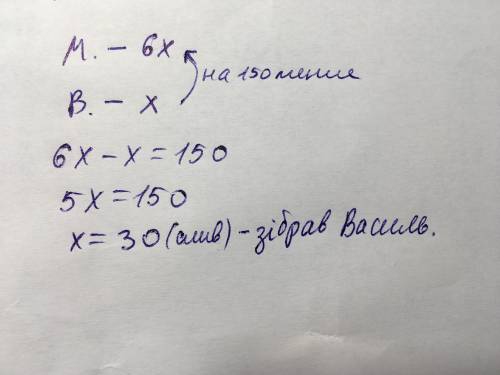 М. – 6х
на 150 менше
В. – х
6х – х = 150
5х = 150
х = 30 (слив) – зібрав Василь.